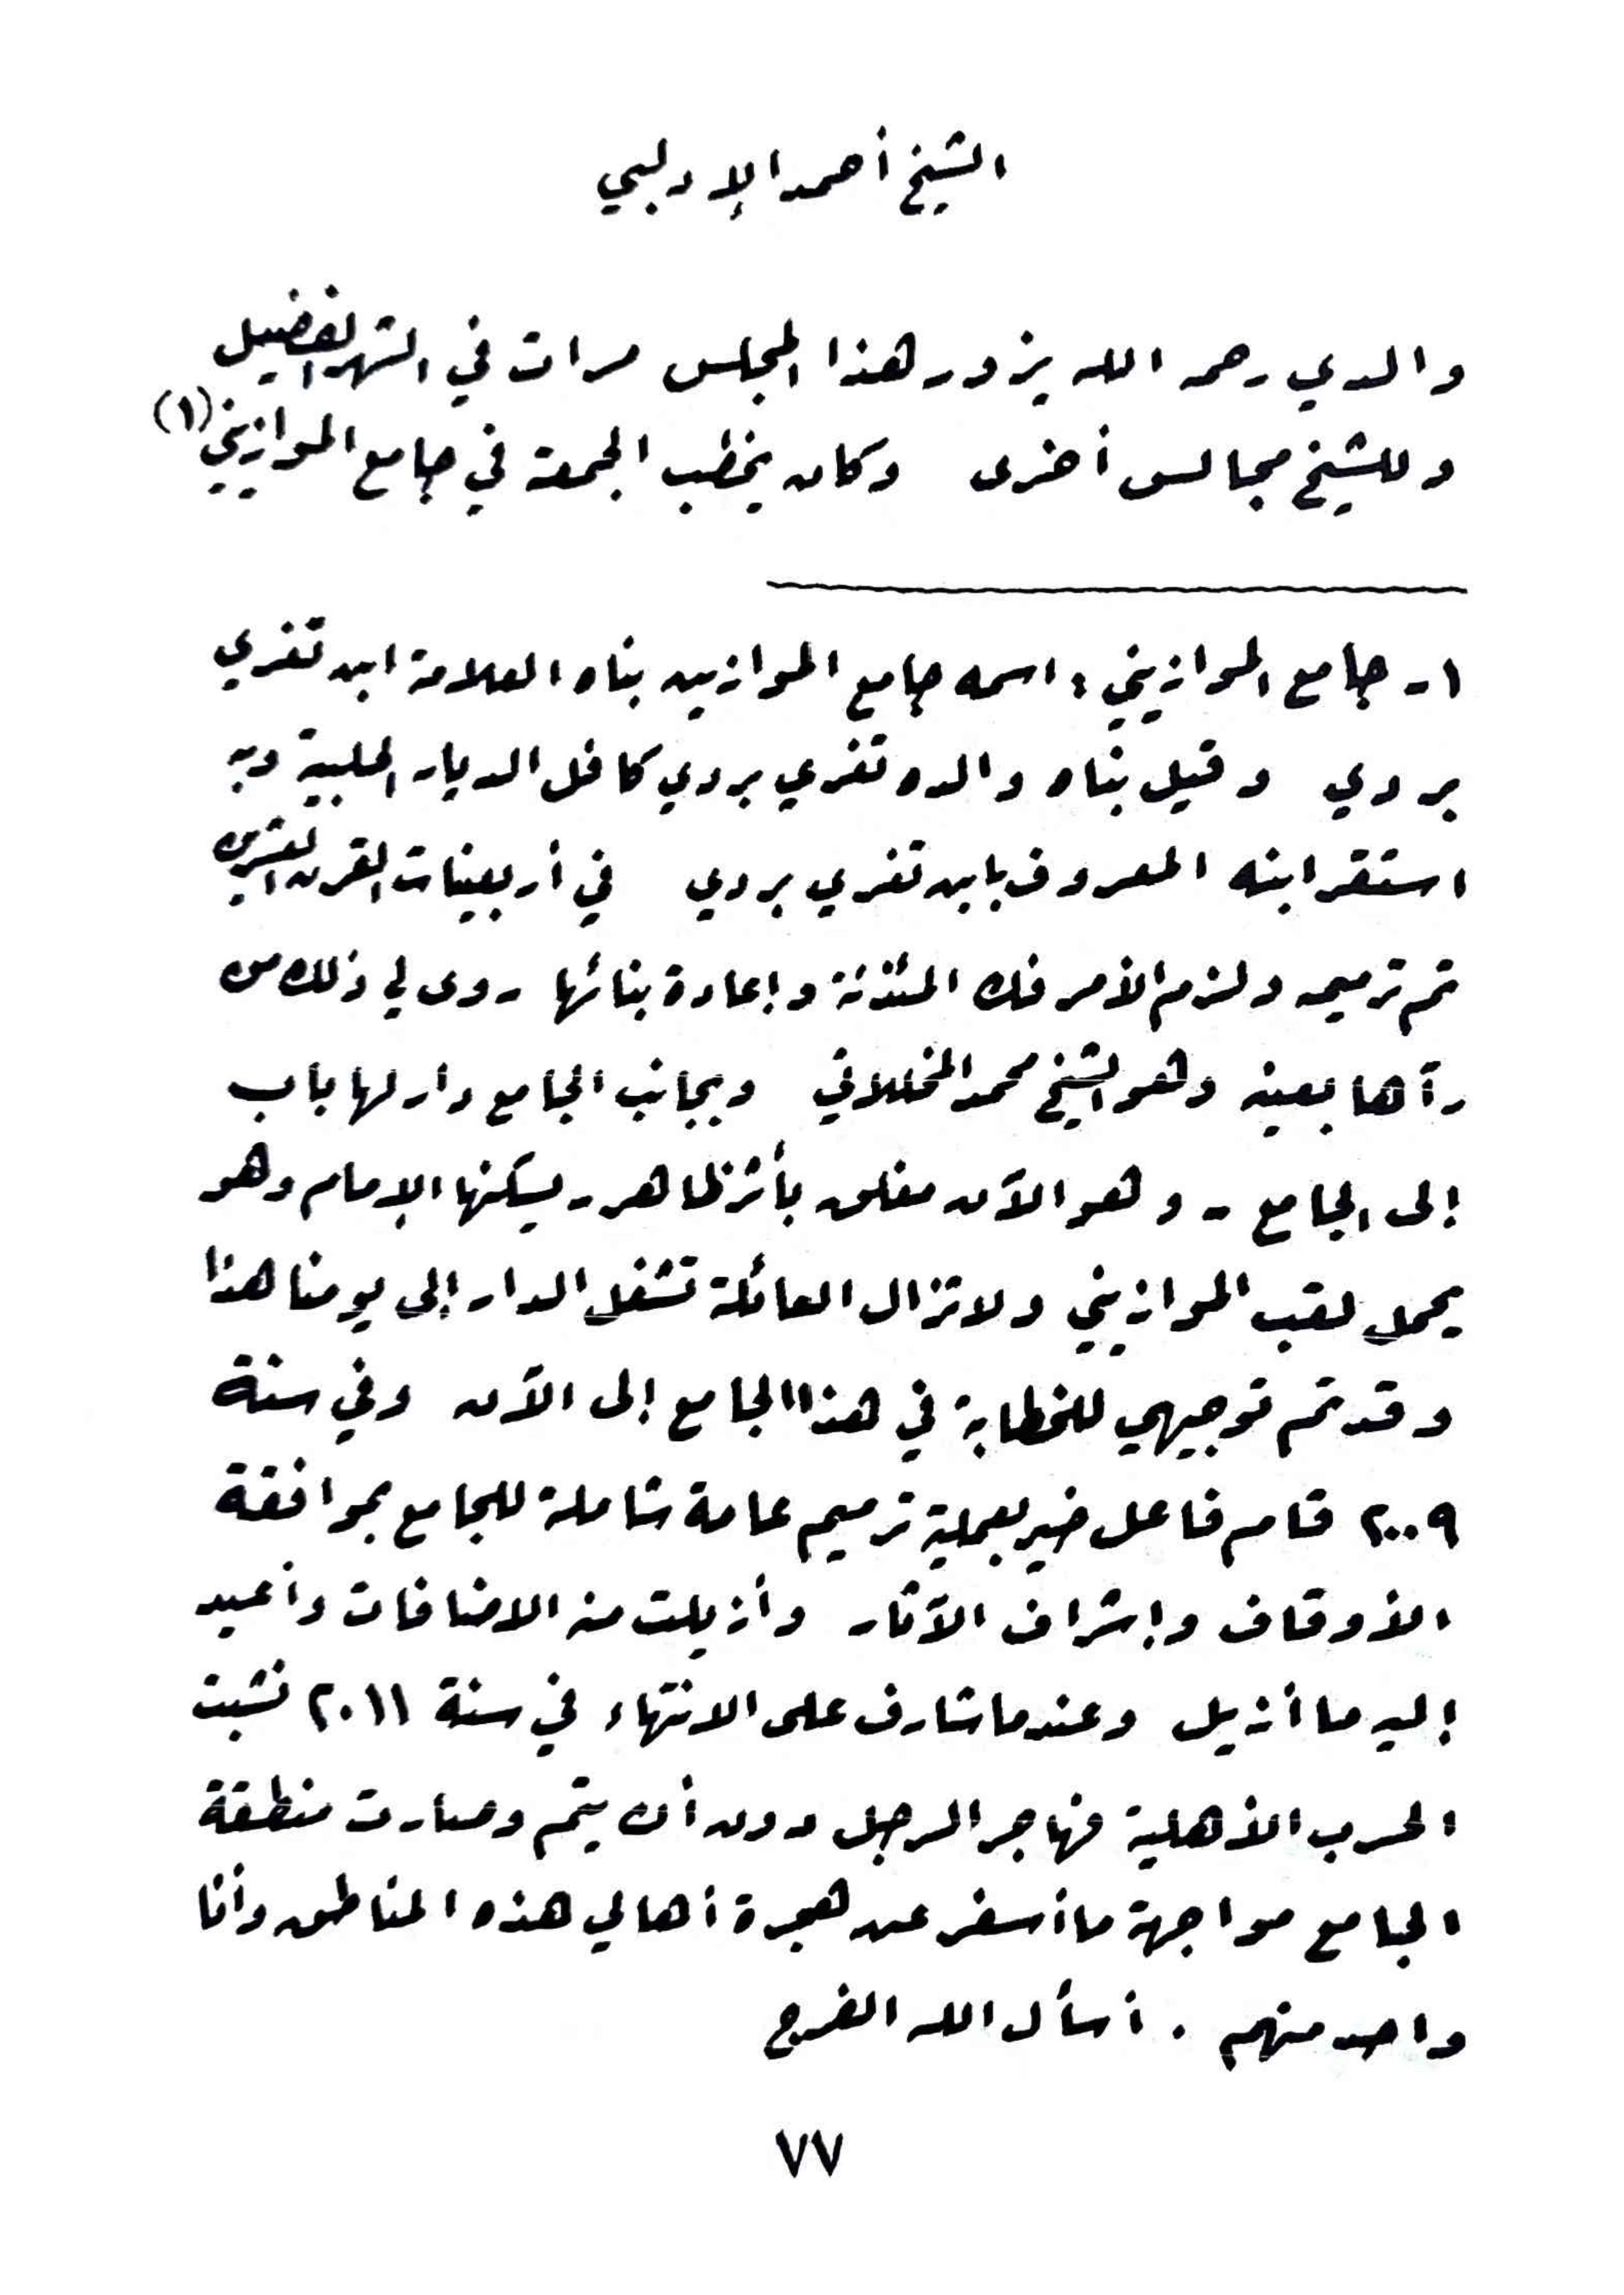 الشيخ أحمد الإدلبي
والدي رحمه الله يزور هذا المجلس مرات في الشهر الفضيل
وللشيخ مجالس أخرى وكان يخطب الجمعة في جامع الموازيني (١)
١- جامع الموازيني : اسمه جامع الموازين بناه العلامة ابن تغري
بردي وقيل بناه والده تغري بردي كافل الديار الحلبية وبه
استقر ابنه المعروف بابن تغري بردي في أربعينات القرن العشرين
تم ترميمه ولزم الأمر فك المئذنة وإعادة بنائها روى لي ذلك من
رآها بعينه وهو الشيخ محمد المخللاتي وبجانب الجامع دار لها باب
إلى الجامع - وهو الآن مغلق بأثر ظاهر - يسكنها الإمام وهو
يحمل لقب الموازيني ولا تزال العائلة تشغل الدار إلى يومنا هذا
وقد تم توجيهي للخطابة في هذا الجامع إلى الآن وفي سنة
٢٠٠٩ قام فاعل خير بعملية ترميم عامة شاملة للجامع بموافقة
الأوقاف وإشراف الآثار وأزيلت منه الاضافات وأعيد
إليه ما أزيل وعندما شارف على الانتهاء في سنة ٢٠١١ نشبت
الحرب الأهلية فهاجر الرجل دون أن يتم وصارت منطقة
الجامع مواجهة ما أسفر عن هجرة أهالي هذه المناطق وأنا
واحد منهم . أسأل الله الفرج
٧٧